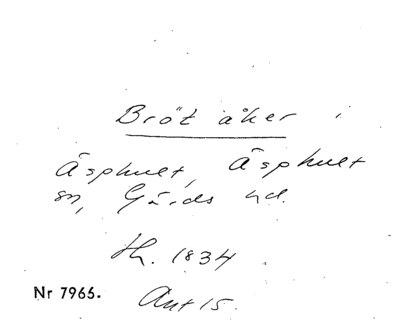 Bröt åker i
Äsphult, Äsphult
sn, Gärds hd.
Hh. 1834
Nr 7965. Ant 15.